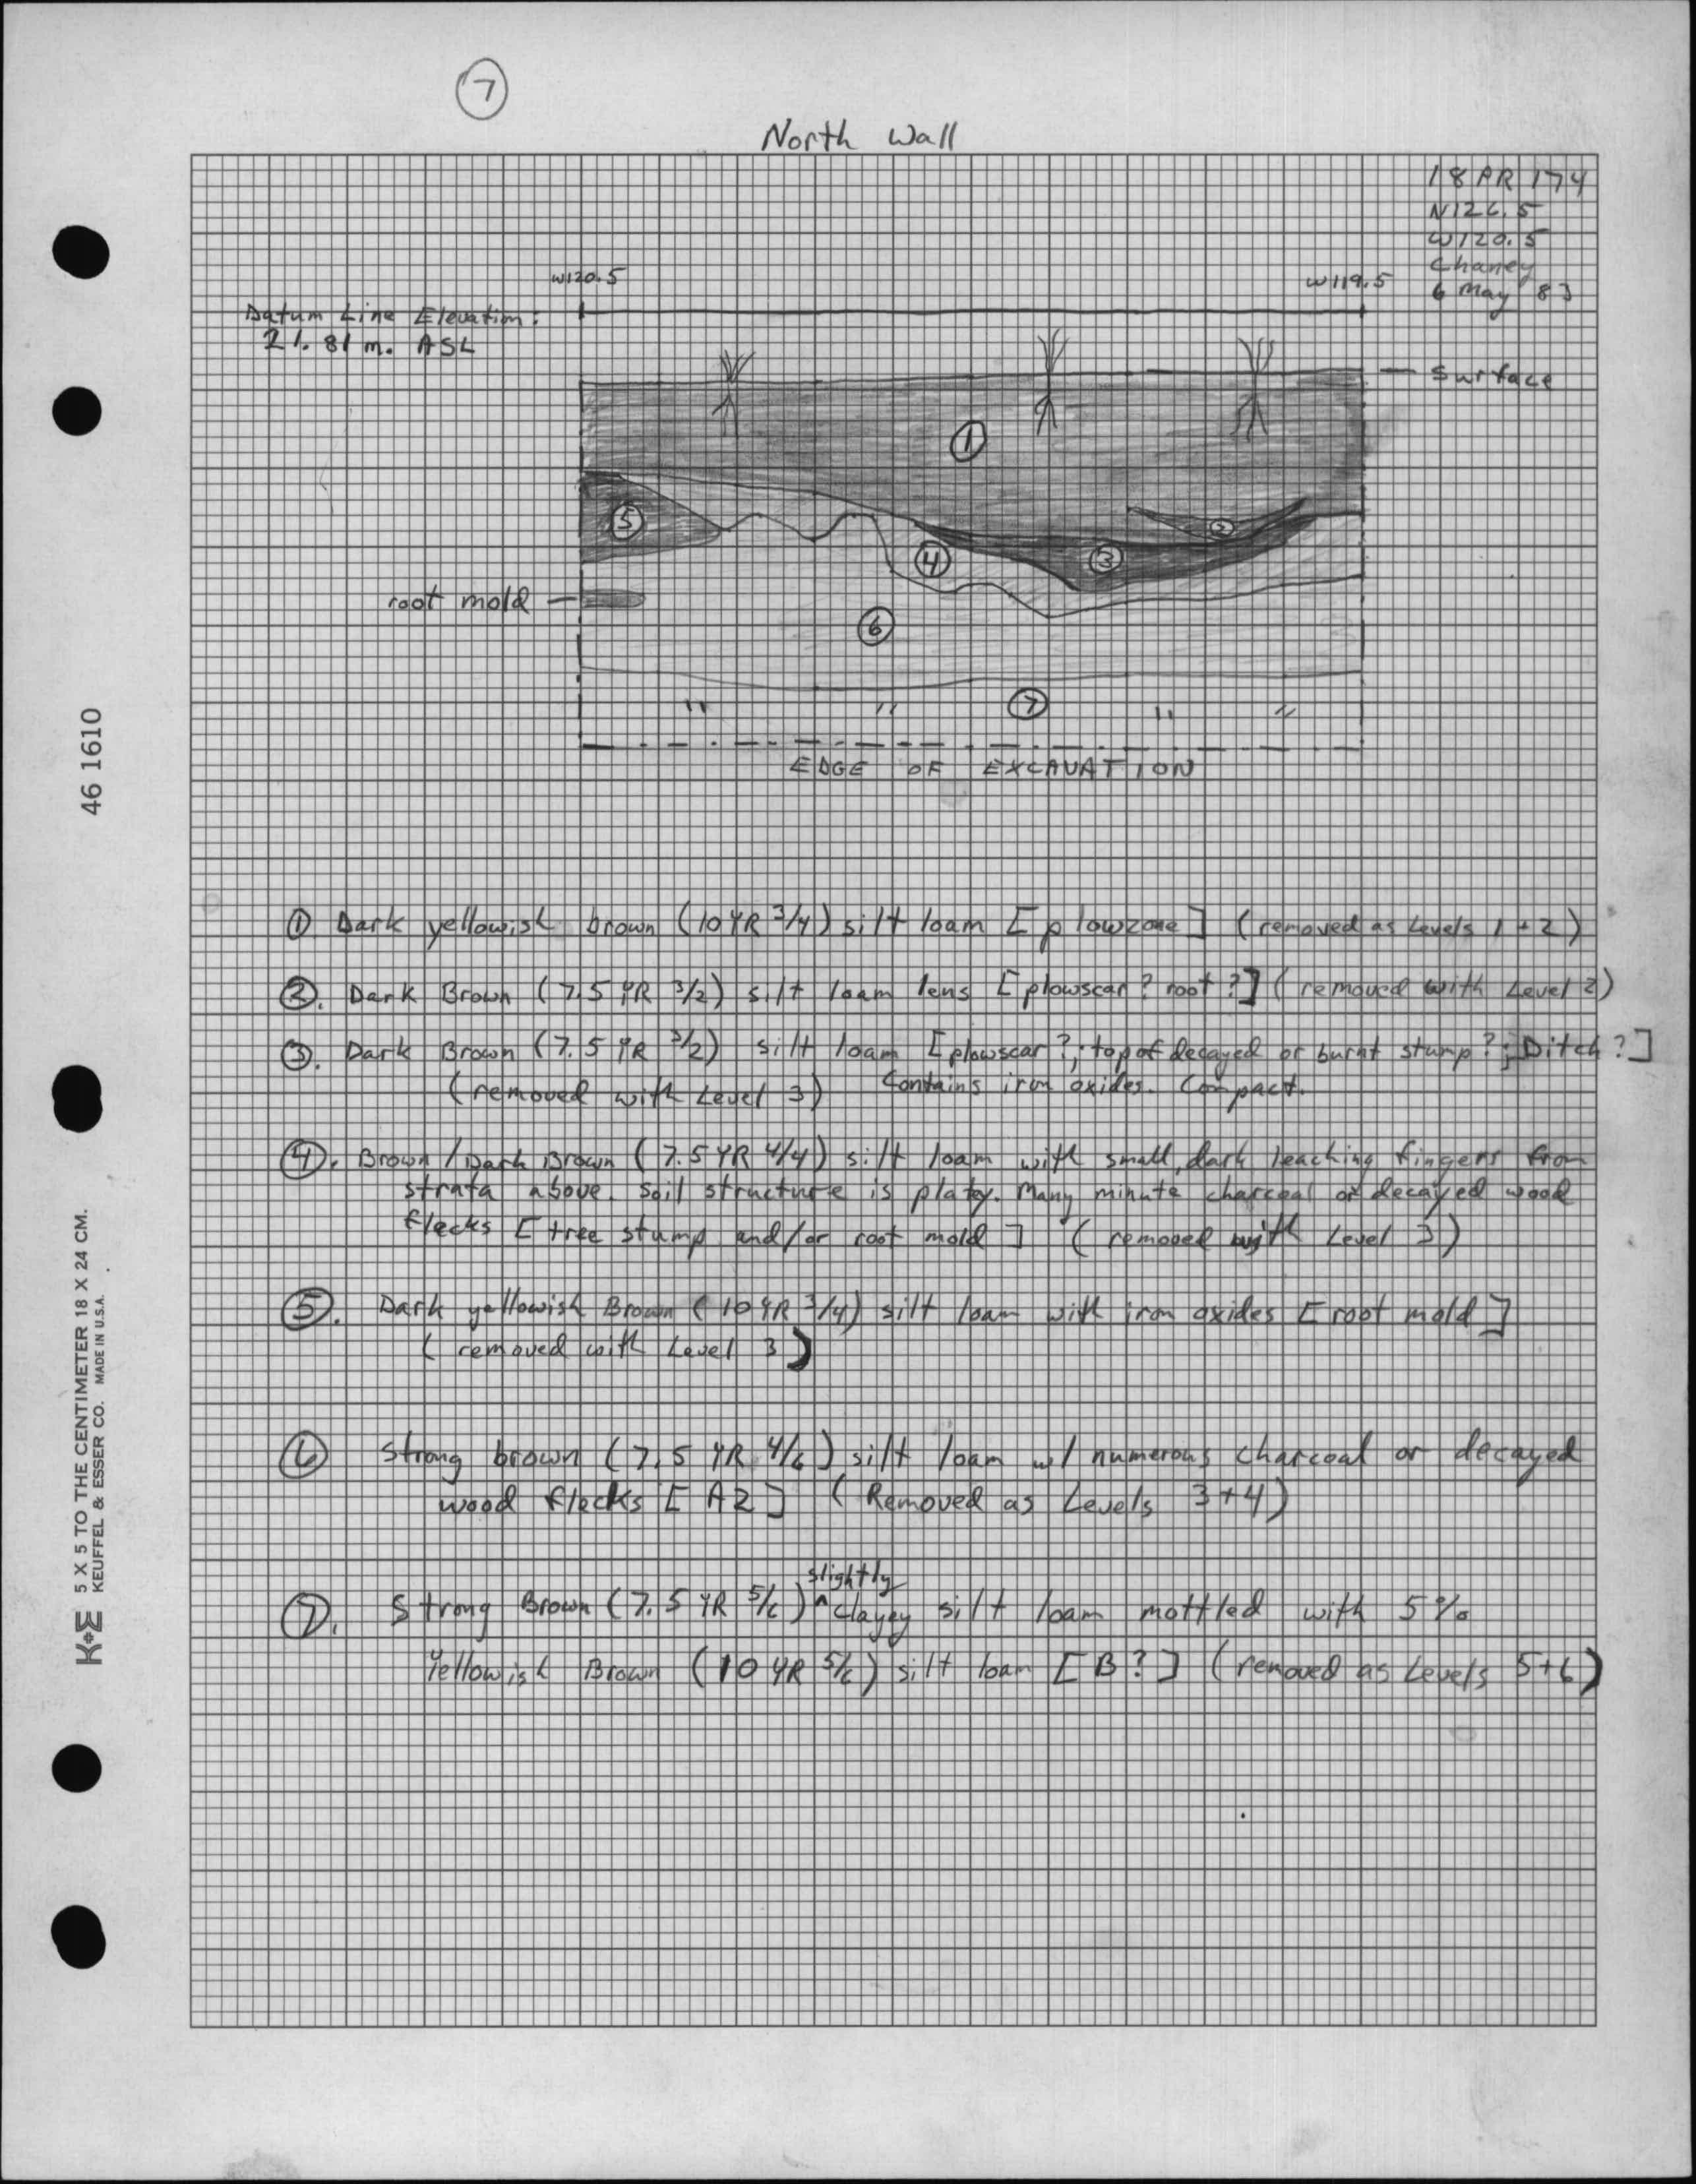 7
North Wall
18 PR 174
N126.5
W120.5
Chaney
6 May 83
W120.5
W119.5
Datum Line Elevation:
21.81 m. ASL
Surface
1
5
2
4
3
root mold
6
7
EDGE OF EXCAVATION
① Dark yellowish brown (10YR 3/4) silt loam [plowzone] (removed as Levels 1+2)
②. Dark Brown (7.5 YR 3/2) silt loam lens [plowscar? root?] (removed with Level 2)
③. Dark Brown (7.5 YR 3/2) silt loam [plowscar?; top of decayed or burnt stump?; Ditch?]
(removed with Level 3) Contains iron oxides. Compact.
④. Brown/Dark Brown (7.5YR 4/4) silt loam with small, dark leaching fingers from
strata above. Soil structure is platey. Many minute charcoal or decayed wood
flecks [tree stump and/or root mold] (removed with Level 3)
⑤. Dark yellowish Brown (10YR 3/4) silt loam with iron oxides [root mold]
(removed with Level 3)
⑥ Strong brown (7.5 YR 4/6) silt loam w/ numerous charcoal or decayed
wood flecks [A2] (Removed as Levels 3+4)
slightly
⑦. Strong Brown (7.5 YR 5/6) ^ clayey silt loam mottled with 5%
Yellowish Brown (10 YR 5/6) silt loam [B?] (removed as Levels 5+6)
46 1610
K+E 5 X 5 TO THE CENTIMETER 18 X 24 CM.
KEUFFEL & ESSER CO. MADE IN U.S.A.